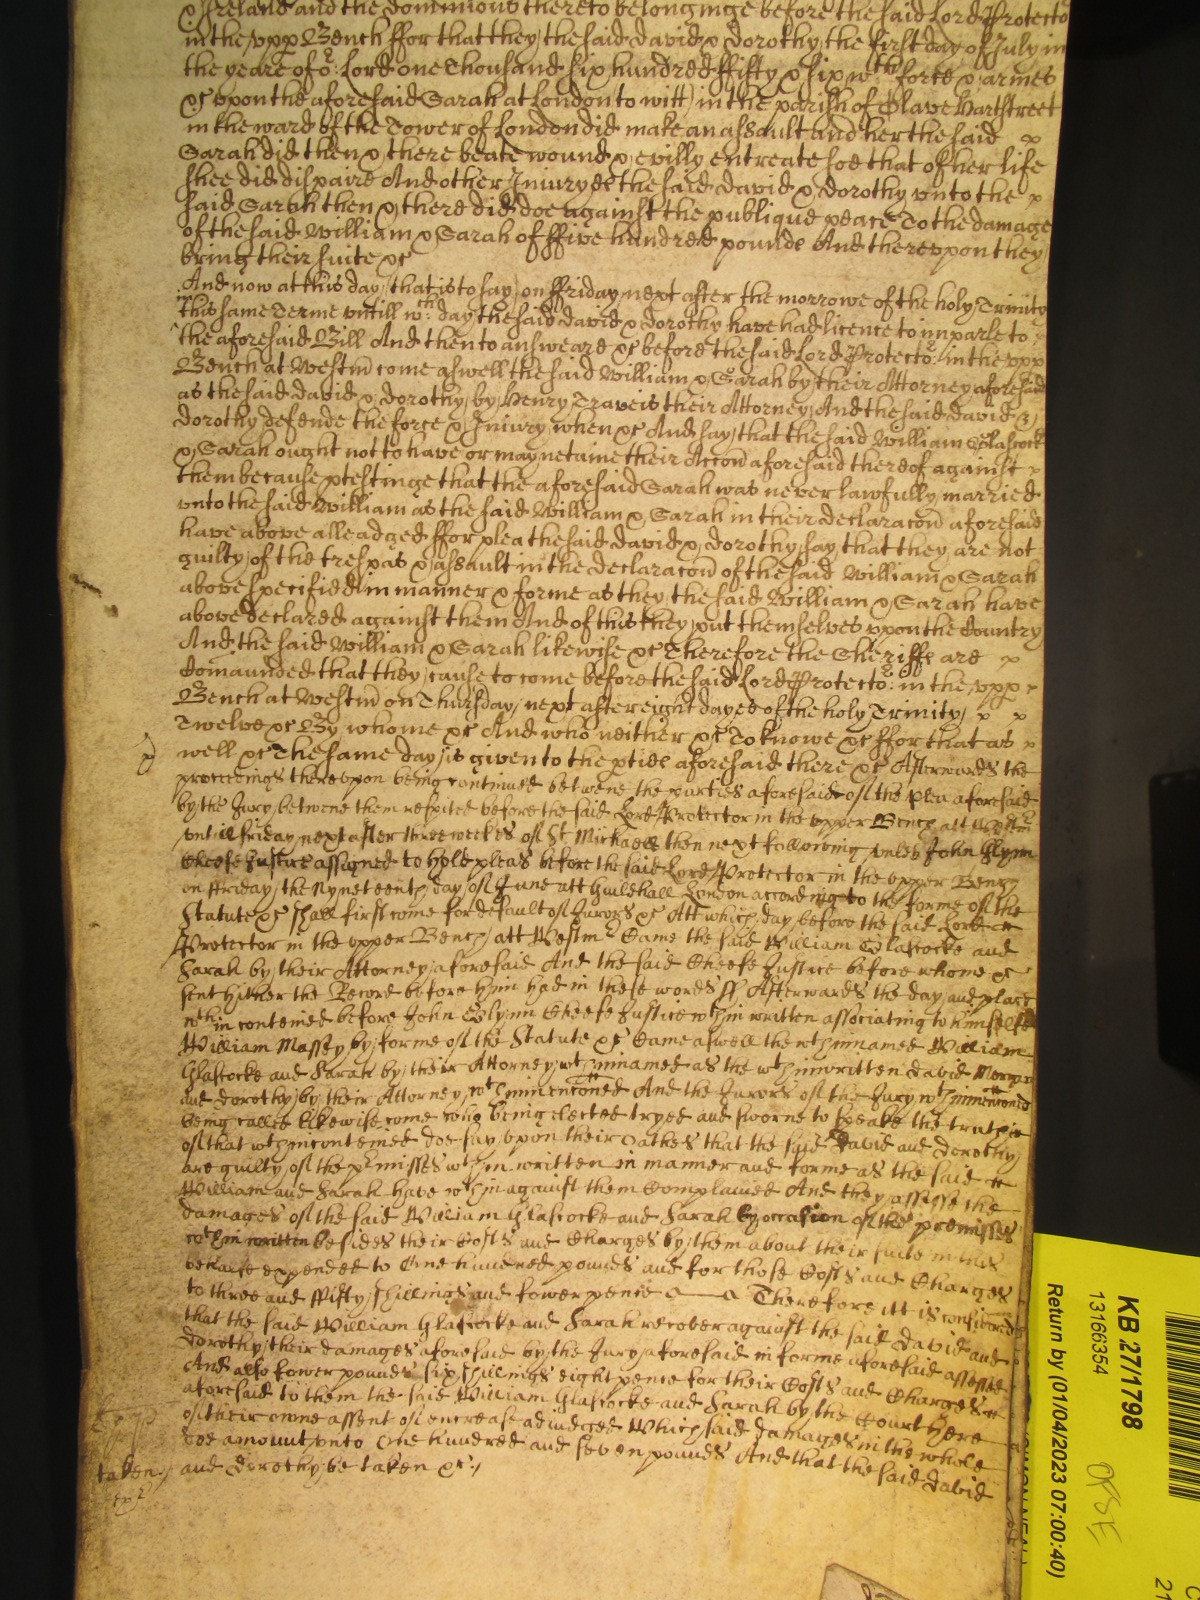 & Ireland and the dominions thereto belonginge before the said Lord Protector
in the upp Bench ffor that they the said David & Dorothy the first day of July in
the yeare of or Lord one thousand six hundred ffifty & six wth force & armes
&c upon the aforesaid Sarah at London to witt in the parish of Olave Hartstreet
in the ward of the Tower of London did make an assault And her the said
Sarah did then & there beate wound & evilly entreate soe that of her life
shee did dispaire And other Iniuryes the said David & Dorothy unto the
said Sarah then & there did doe against the publique peace To the damage
of the said William & Sarah of ffive hundred pounds And thereupon they
bring their suite &c
And now at this day that is to say on ffriday next after the morrowe of the holy Trinity
in this same Terme untill wch day the said David & Dorothy have had licence to imparle to
the aforesaid Bill And then to answeare &c before the said Lord Protector in the upp
Bench at Westm come aswell the said William & Sarah by their Attorney aforesaid
as the said David & Dorothy by Henry Traveis their Attorney And the said David &
Dorothy defende the force & Iniury when &c And say that the said William Glascock
& Sarah ought not to have or maynetaine their Accon aforesaid thereof against
them because ptestinge that the aforesaid Sarah was never lawfully married
unto the said William as the said William & Sarah in their declaracon aforesaid
have above alleadged ffor plea the said David & Dorothy say that they are not
guilty of the trespas & assault in the declaracon of the said William & Sarah
above specified in manner & forme as they the said William & Sarah have
above declared against them And of this they put themselves upon the Country
And the said William & Sarah likewise &c Therefore the Sheriffs are
comaunded that they cause to come before the said Lord Protector in the upp
Bench at Westm on Thursday next after eight dayes of the holy Trinity
Twelve &c By whome &c And who neither &c To knowe &c ffor that as
well &c The same day is given to the pties aforesaid there &c Afterwards the
proceedings thereupon being continued betwene the parties aforesaid of the plea aforesaid
by the Jury betwene them respited before the said Lord Protector in the upper Bench att Westm
untill friday next after three weekes of St Michaell then next following unles John Glynn
Cheefe Justice assigned to hold pleas before the said Lord Protector in the upper Bench
on ffriday the Nyneteenth day of June att Guildhall London according to the forme of the
Statute &c shall first come for default of Jurors &c Att which day before the said Lord
Protector in the upper Bench att Westmr Came the said William Glascocke and
Sarah by their Attorney aforesaid And the said Cheefe Justice before whome &c
sent hither the Record before him had in these words ss Afterwards the day and place
wthin conteined before John Glynn Cheefe Justice wthin written associating to himselfe
William Massey by forme of the Statute &c Came aswell the wthinnamed William
Glascocke and Sarah by their Attorney wthinnamed as the wthinwritten David Morgan
and Dorothy by their Attorney wthinmenconed And the Jurors of the Jury wthinmenconed
being called likewise come who being elected tryed and sworne to speake the truth
of that wthinconteined doe say upon their oathes that the said David and Dorothy
are guilty of the pmisses wthin written in manner and forme as the said
William and Sarah have wthin against them Complained And they assesse the
damages of the said William Glascocke and Sarah by occasion of the premisses
wthin written besides their Costs and Charges by them about their suite in this
behalfe expended to One hundred pounds and for those Costs and Charges
to three and ffifty shillings and fower pence Therefore itt is considered
that the said William Glascocke and Sarah recover against the said David and
Dorothy their damages aforesaid by the Jury aforesaid in forme aforesaid assessed
And also fower pounds six shillings eight pence for their Costs and Charges
aforesaid to them the said William Glascocke and Sarah by the Court here
of their owne assent of encrease adiudged Which said damages in the whole
doe amount unto One hundred and seven pounds And that the said David
and Dorothy be taken &c
taken
KB 27/1798
13166354
Return by (01/04/2023 07:00:40)